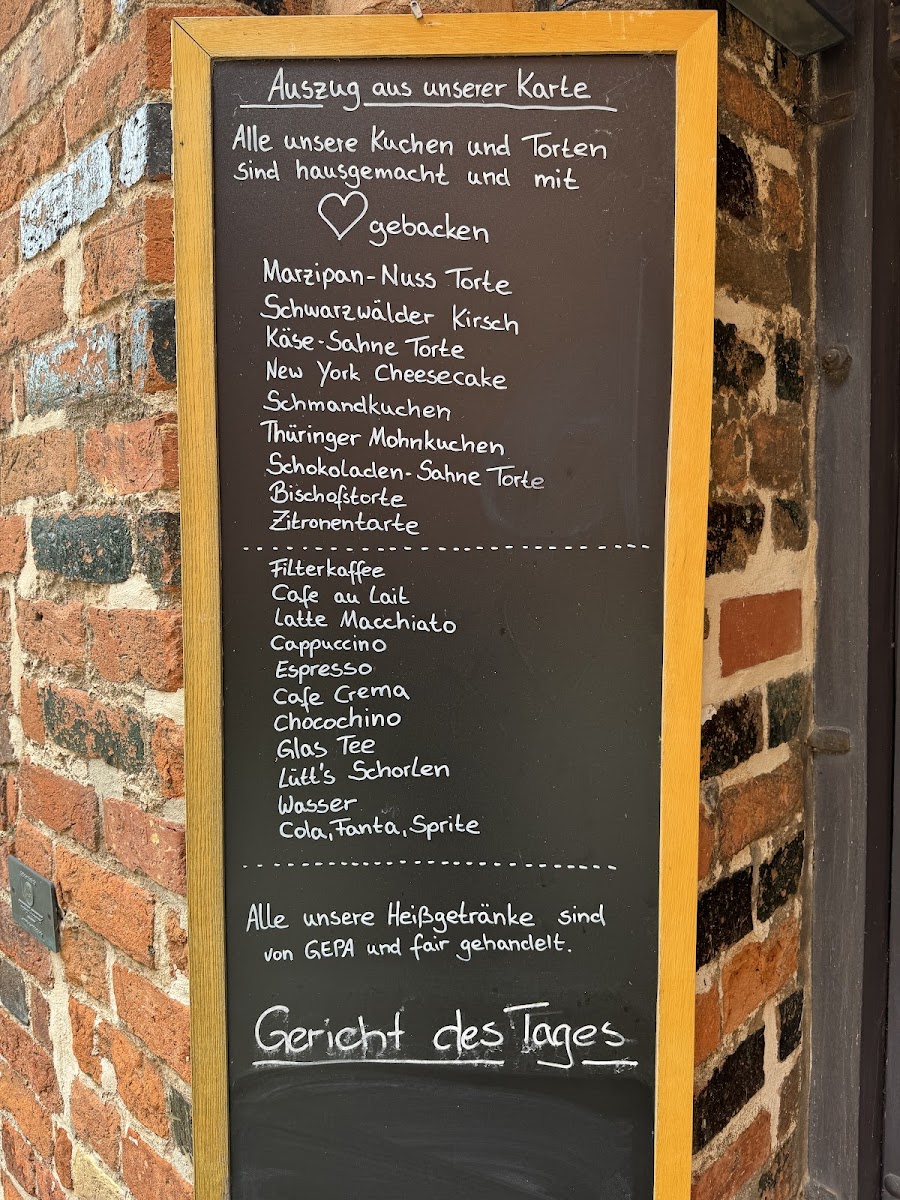 Auszug aus unserer Karte
Alle unsere Kuchen und Torten
sind hausgemacht und mit
gebacken
Marzipan-Nuss Torte
Schwarzwälder Kirsch
Käse-Sahne Torte
New York Cheesecake
Schmandkuchen
Thüringer Mohnkuchen
Schokoladen-Sahne Torte
Bischofstorte
Zitronentarte
Filterkaffee
Cafe au Lait
Latte Macchiato
Cappuccino
Espresso
Cafe Crema
Chocochino
Glas Tee
Lütt's Schorlen
Wasser
Cola, Fanta, Sprite
Alle unsere Heißgetränke sind
von GEPA und fair gehandelt.
Gericht des Tages